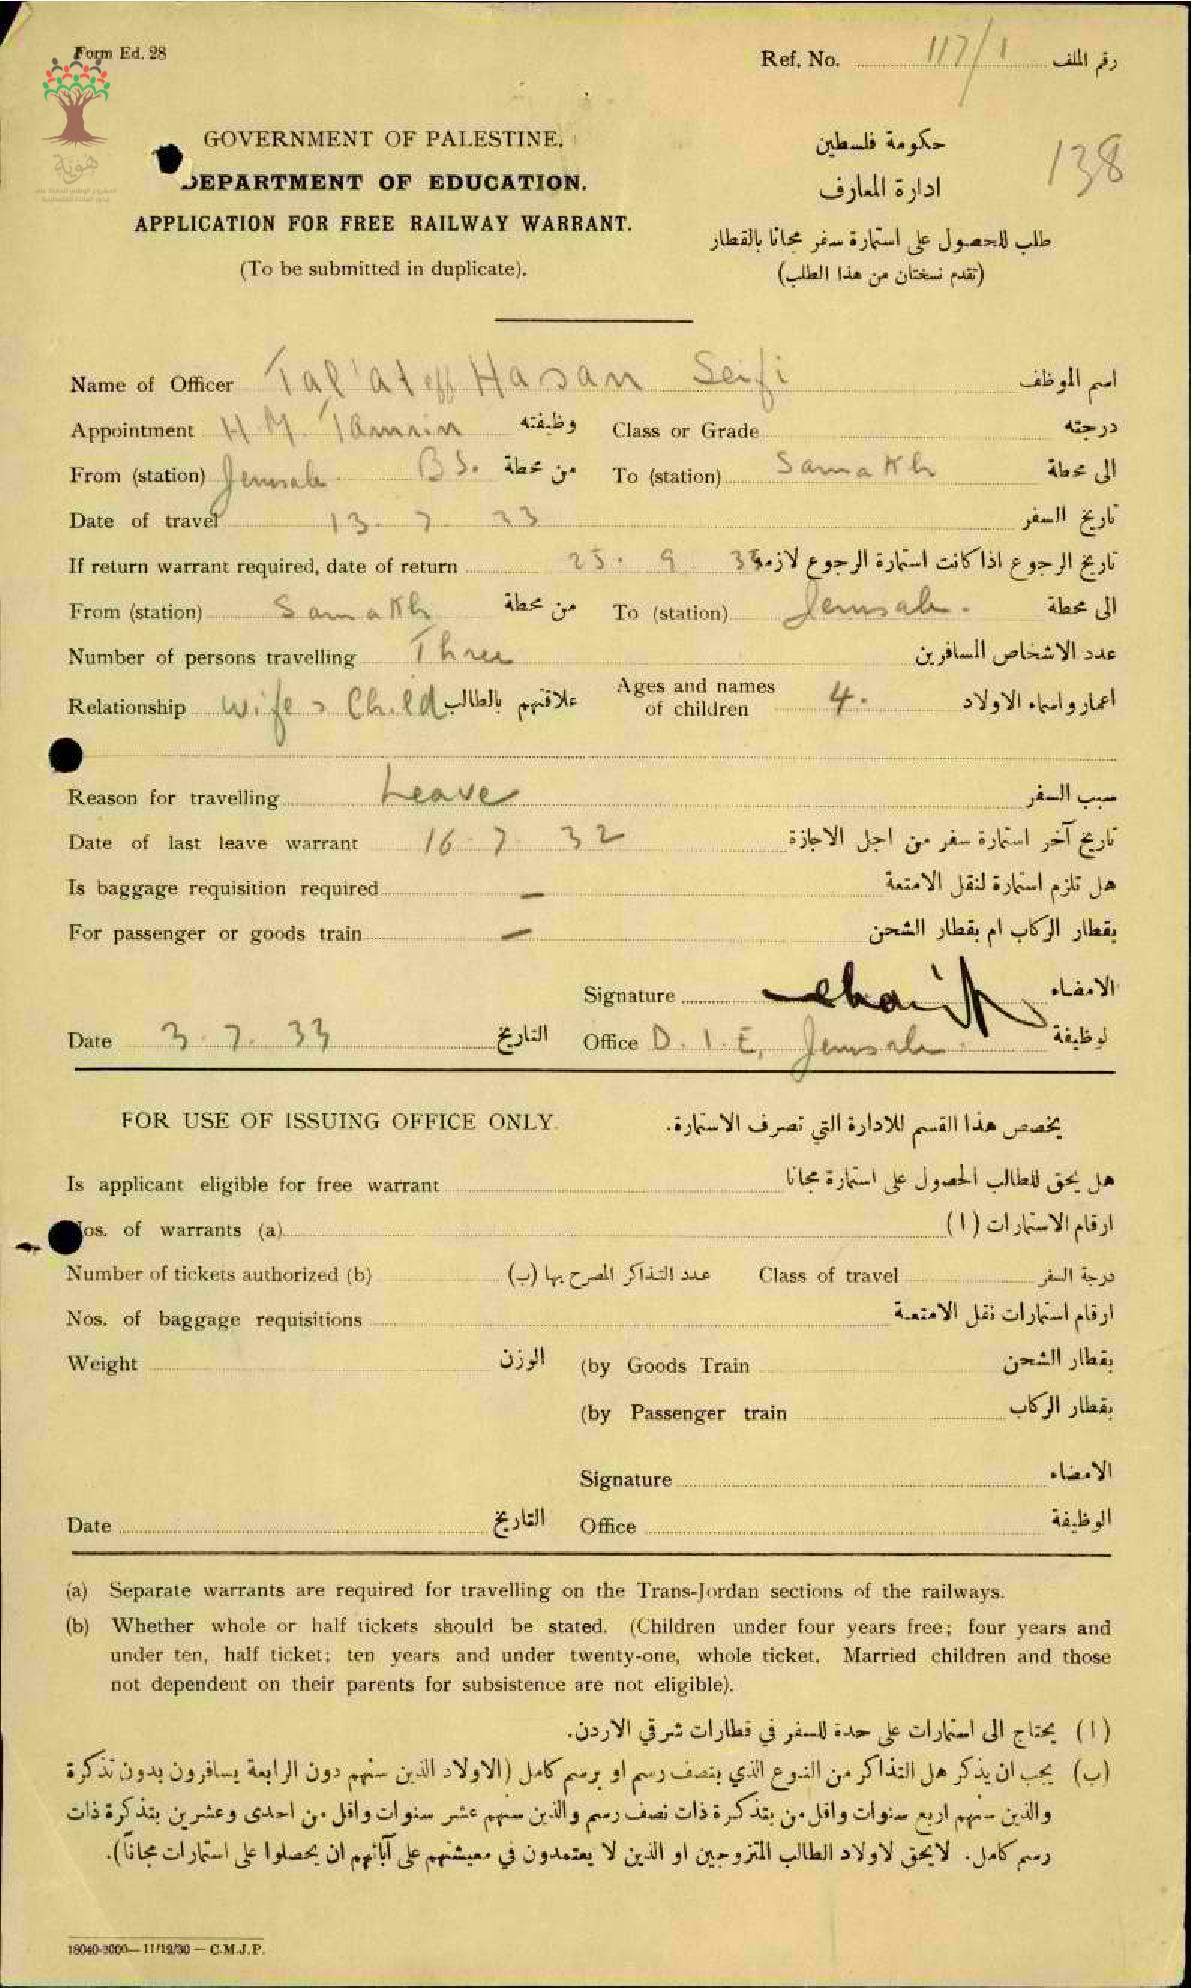 Form Ed. 28
Ref. No. 117/1 رقم الملف
هوية
138
GOVERNMENT OF PALESTINE. حكومة فلسطين
DEPARTMENT OF EDUCATION. ادارة المعارف
APPLICATION FOR FREE RAILWAY WARRANT. طلب للحصول على استمارة سفر مجانا بالقطار
(To be submitted in duplicate). (تقدم نسختان من هذا الطلب)
Name of Officer Tal'at eff Hasan Seifi اسم الموظف
Appointment H. M. Tamrin وظيفته Class or Grade درجته
From (station) Jerusale. B S. من محطة To (station) Samakh الى محطة
Date of travel 13. 7 33 تاريخ السفر
If return warrant required, date of return 25. 9 33 تاريخ الرجوع اذا كانت استمارة الرجوع لازمة
From (station) Samakh من محطة To (station) Jerusale. الى محطة
Number of persons travelling Three عدد الاشخاص المسافرين
Relationship Wife & Child علاقتهم بالطالب Ages and names of children 4. اعمار واسماء الاولاد
Reason for travelling Leave سبب السفر
Date of last leave warrant 16. 7. 32 تاريخ آخر استمارة سفر من اجل الاجازة
Is baggage requisition required – هل تلزم استمارة لنقل الامتعة
For passenger or goods train – بقطار الركاب ام بقطار الشحن
Signature الامضاء
Date 3. 7. 33 التاريخ Office D. I. E, Jerusale. لوظيفة
FOR USE OF ISSUING OFFICE ONLY. يخصص هذا القسم للادارة التي تصرف الاستمارة.
Is applicant eligible for free warrant هل يحق للطالب الحصول على استمارة مجانا
Nos. of warrants (a) ارقام الاستمارات (ا)
Number of tickets authorized (b) عدد التذاكر المصرح بها (ب) Class of travel درجة السفر
Nos. of baggage requisitions ارقام استمارات نقل الامتعة
Weight الوزن (by Goods Train بقطار الشحن
(by Passenger train بقطار الركاب
Signature الامضاء
Date التاريخ Office الوظيفة
(a) Separate warrants are required for travelling on the Trans-Jordan sections of the railways.
(b) Whether whole or half tickets should be stated. (Children under four years free; four years and
under ten, half ticket; ten years and under twenty-one, whole ticket. Married children and those
not dependent on their parents for subsistence are not eligible).
(ا) يحتاج الى استمارات على حدة للسفر في قطارات شرقي الاردن.
(ب) يجب ان يذكر هل التذاكر من النوع الذي بنصف رسم او برسم كامل (الاولاد الذين سنهم دون الرابعة يسافرون بدون تذكرة
والذين سنهم اربع سنوات واقل من بتذكرة ذات نصف رسم والذين سنهم عشر سنوات واقل من احدى وعشرين بتذكرة ذات
رسم كامل. لايحق لاولاد الطالب المتزوجين او الذين لا يعتمدون في معيشتهم على آبائهم ان يحصلوا على استمارات مجاناً).
18040-3000—11/12/30 — C.M.J.P.